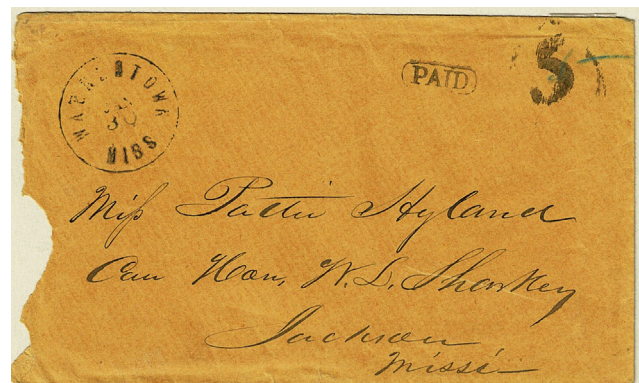 WARRENTOWN MISS
30
PAID
5
Miss Pattie Hyland
Care Hon. W. L. Sharkey
Jackson
Missi